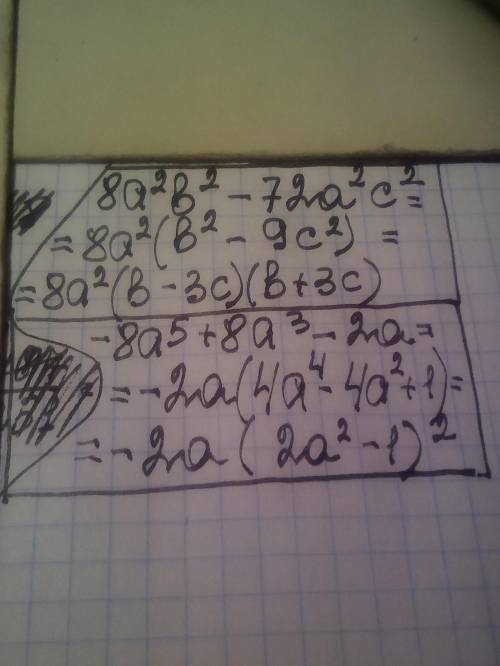 8a²b² - 72a²c² =
= 8a²(b² - 9c²) =
= 8a²(b - 3c)(b + 3c)
- 8a⁵ + 8a³ - 2a =
= - 2a(4a⁴ - 4a² + 1) =
= - 2a(2a² - 1)²